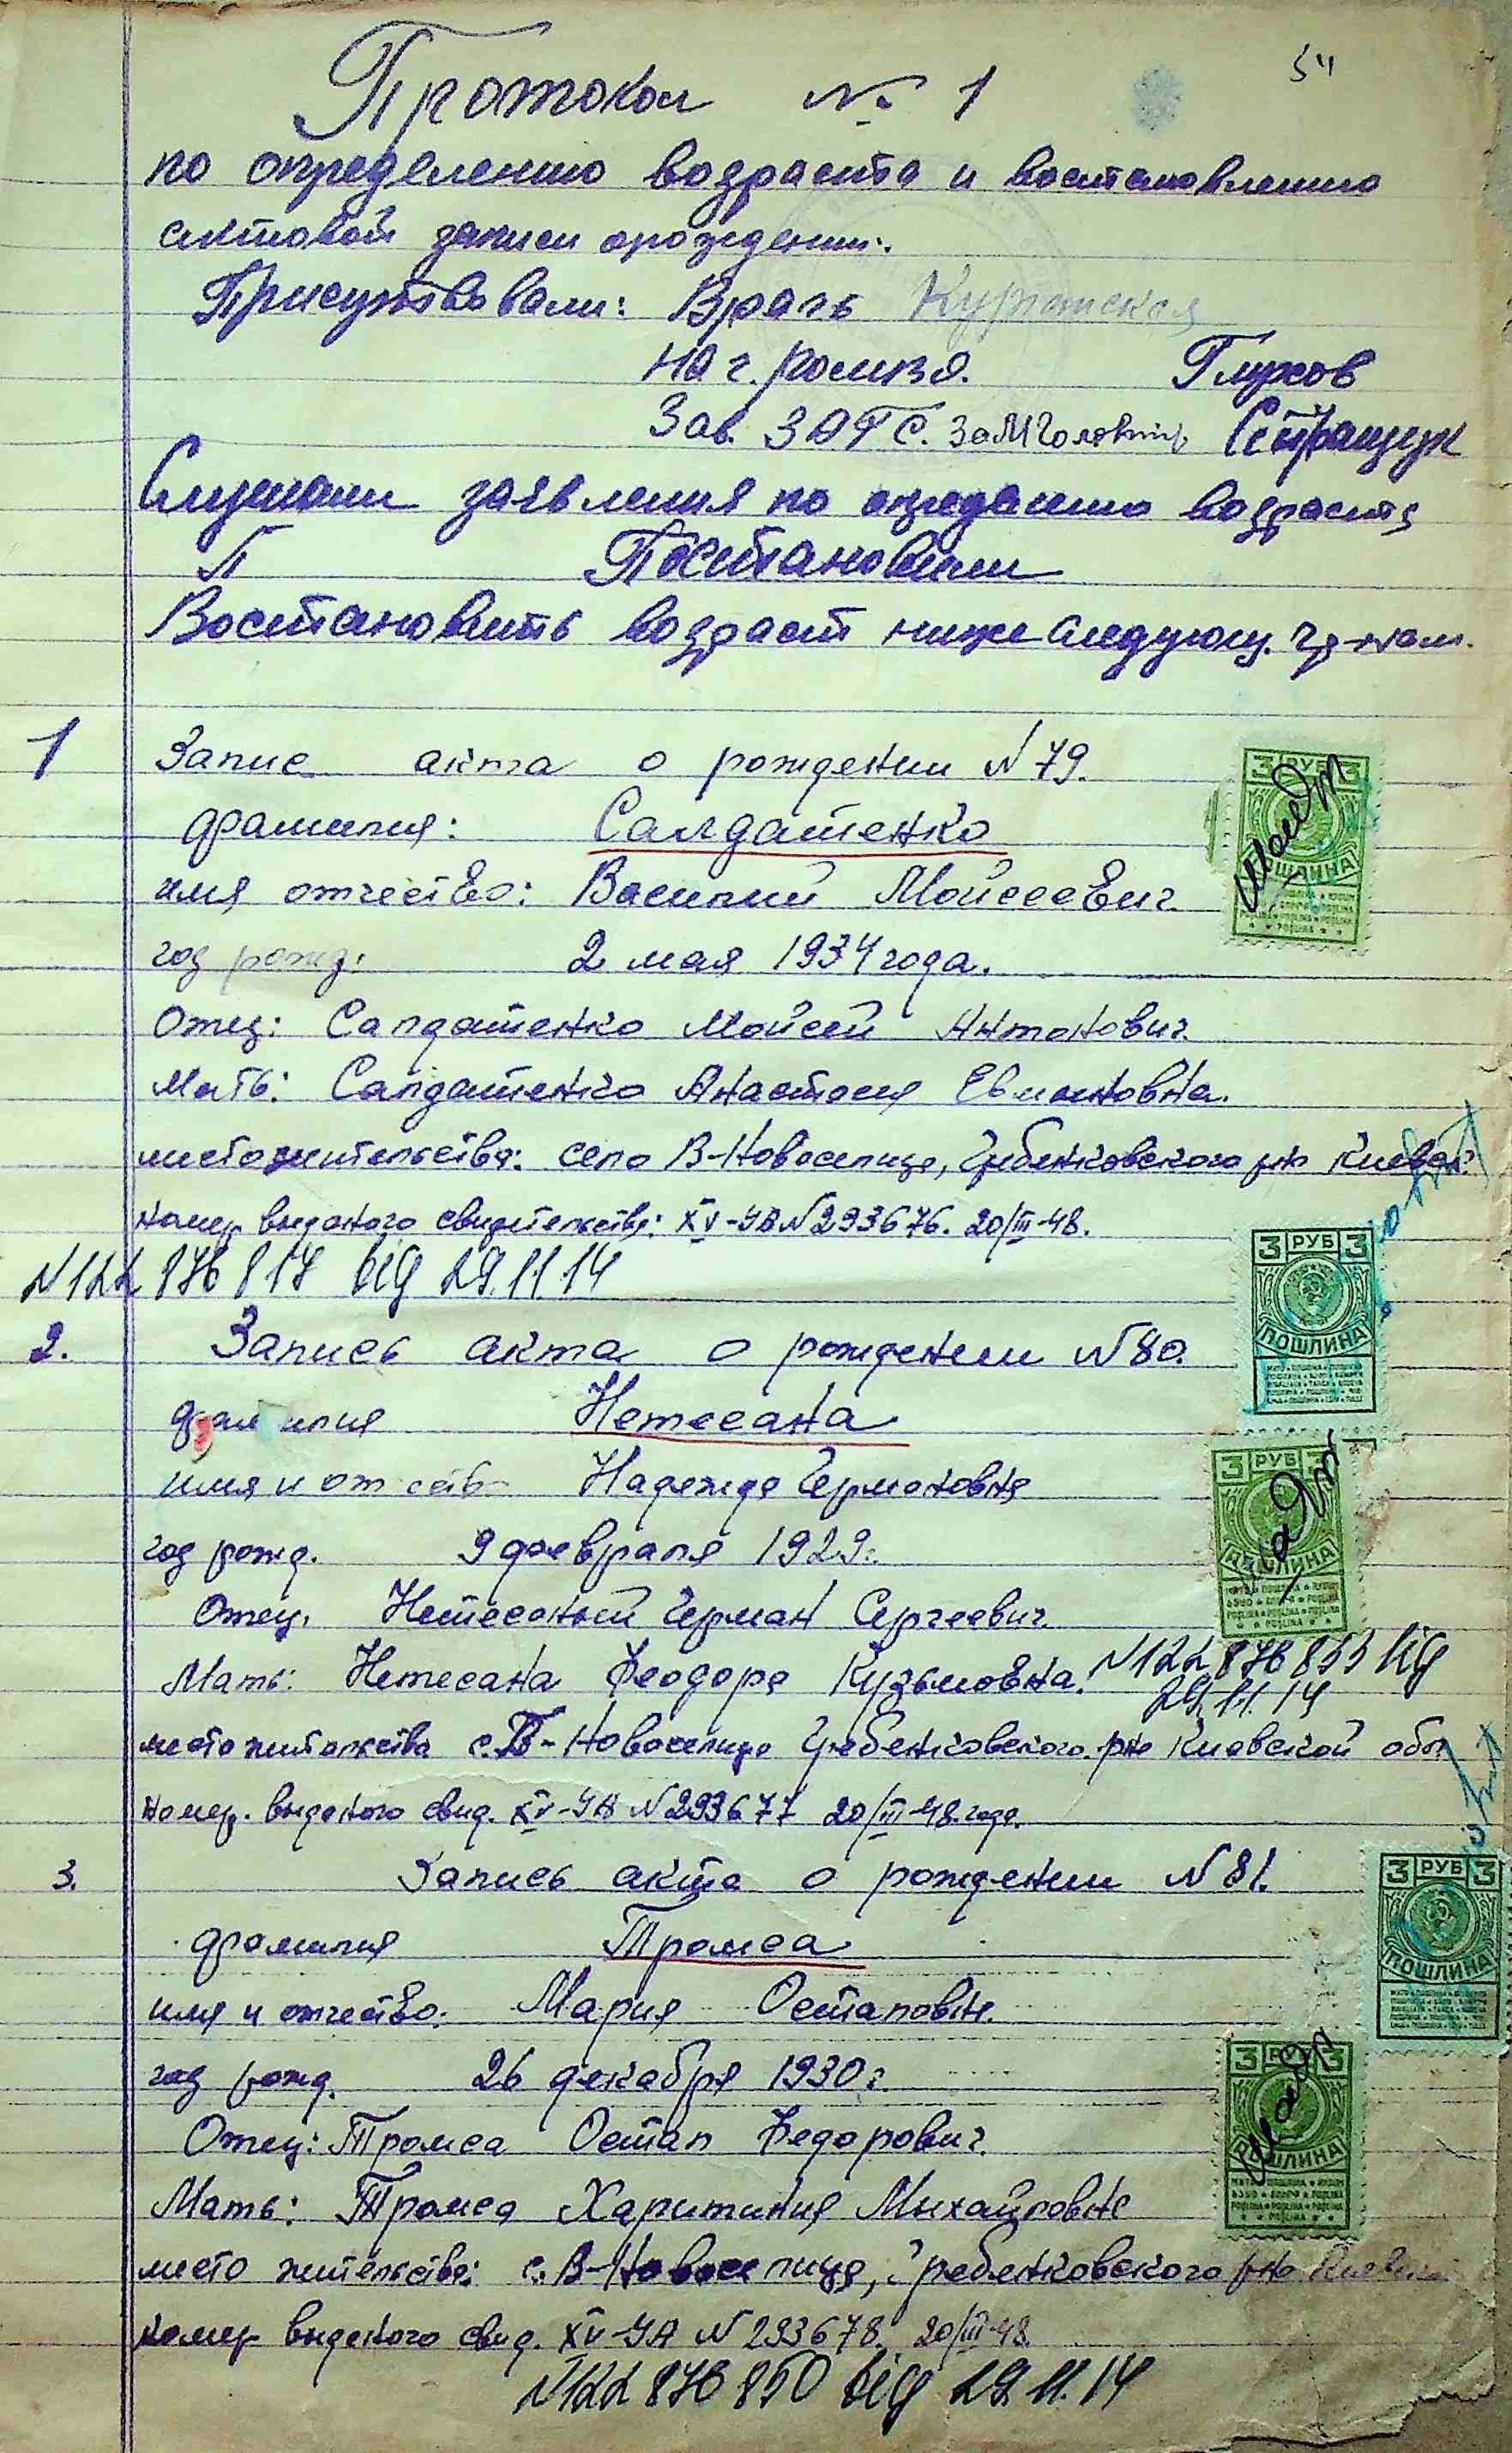 54
Протокол № 1
по определению возраста и востановлению
актовой записи орождении.
Присутствовали: Врачь
нач.
Глухов
Зав. ЗАГС.
Слушали заявления по определению возраста
П Постановили
Востановить возраст нижеследующ. гр-нам.
1 Запис акта о рождении N 79.
фамилия: Салдатенко
имя отчество: Василий Мойсеевич
год рожд: 2 мая 1934 года.
Отец: Салдатенко Мойсей Антонович
Мать: Салдатенко Анастасия
место жительства: село В-Новоселица, Гребенковского р-н Киевск.
номер выданого свидетельства: XV-УА N 293676. 20/III-48.
N 122 876 817 від 29.11.14
2. Запись акта о рождении N 80.
фамилия Нетесана
имя и отчеств Надежда Германовна
год рожд. 9 февраля 1929г.
Отец. Нетесаный Герман Сергеевич.
Мать: Нетесана Феодора Кузьмовна.
N 122 876 853 від
29.11.14
место жительства с. В-Новоселица Гребенковского р-на Киевской обл
номер. выданого свид. XV-УА N 293677 20/III-48. года.
3. Запись акта о рождении N 81.
фамилия Тромса
имя и отчество: Мария Остаповн.
год рожд. 26 декабря 1930г.
Отец: Тромса Остап Федорович.
Мать: Тромса Харитиния Михайловна
место жительства: с. В-Новоселица, Гребенковского р-на
номер выданого свид. XV-УА N 293678. 20/III-48.
N 122 876 850 від 29.11.14
3 РУБ 3
ПОШЛИНА
3 РУБ 3
ПОШЛИНА
3 РУБ 3
ПОШЛИНА
3 РУБ 3
ПОШЛИНА
3 РУБ 3
ПОШЛИНА